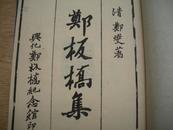 清 鄭燮著
鄭板橋集
興化鄭板橋紀念館印